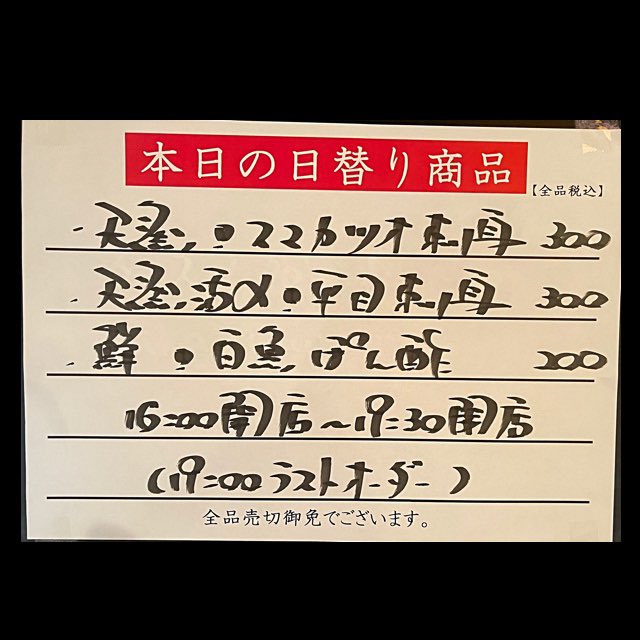 本日の日替り商品
【全品税込】
・天然・スマカツオ刺身 300
・天然活〆・平目刺身 300
・鮮・白魚ぽん酢 200
16:00開店〜19:30閉店
(19:00ラストオーダー)
全品売切御免でございます。